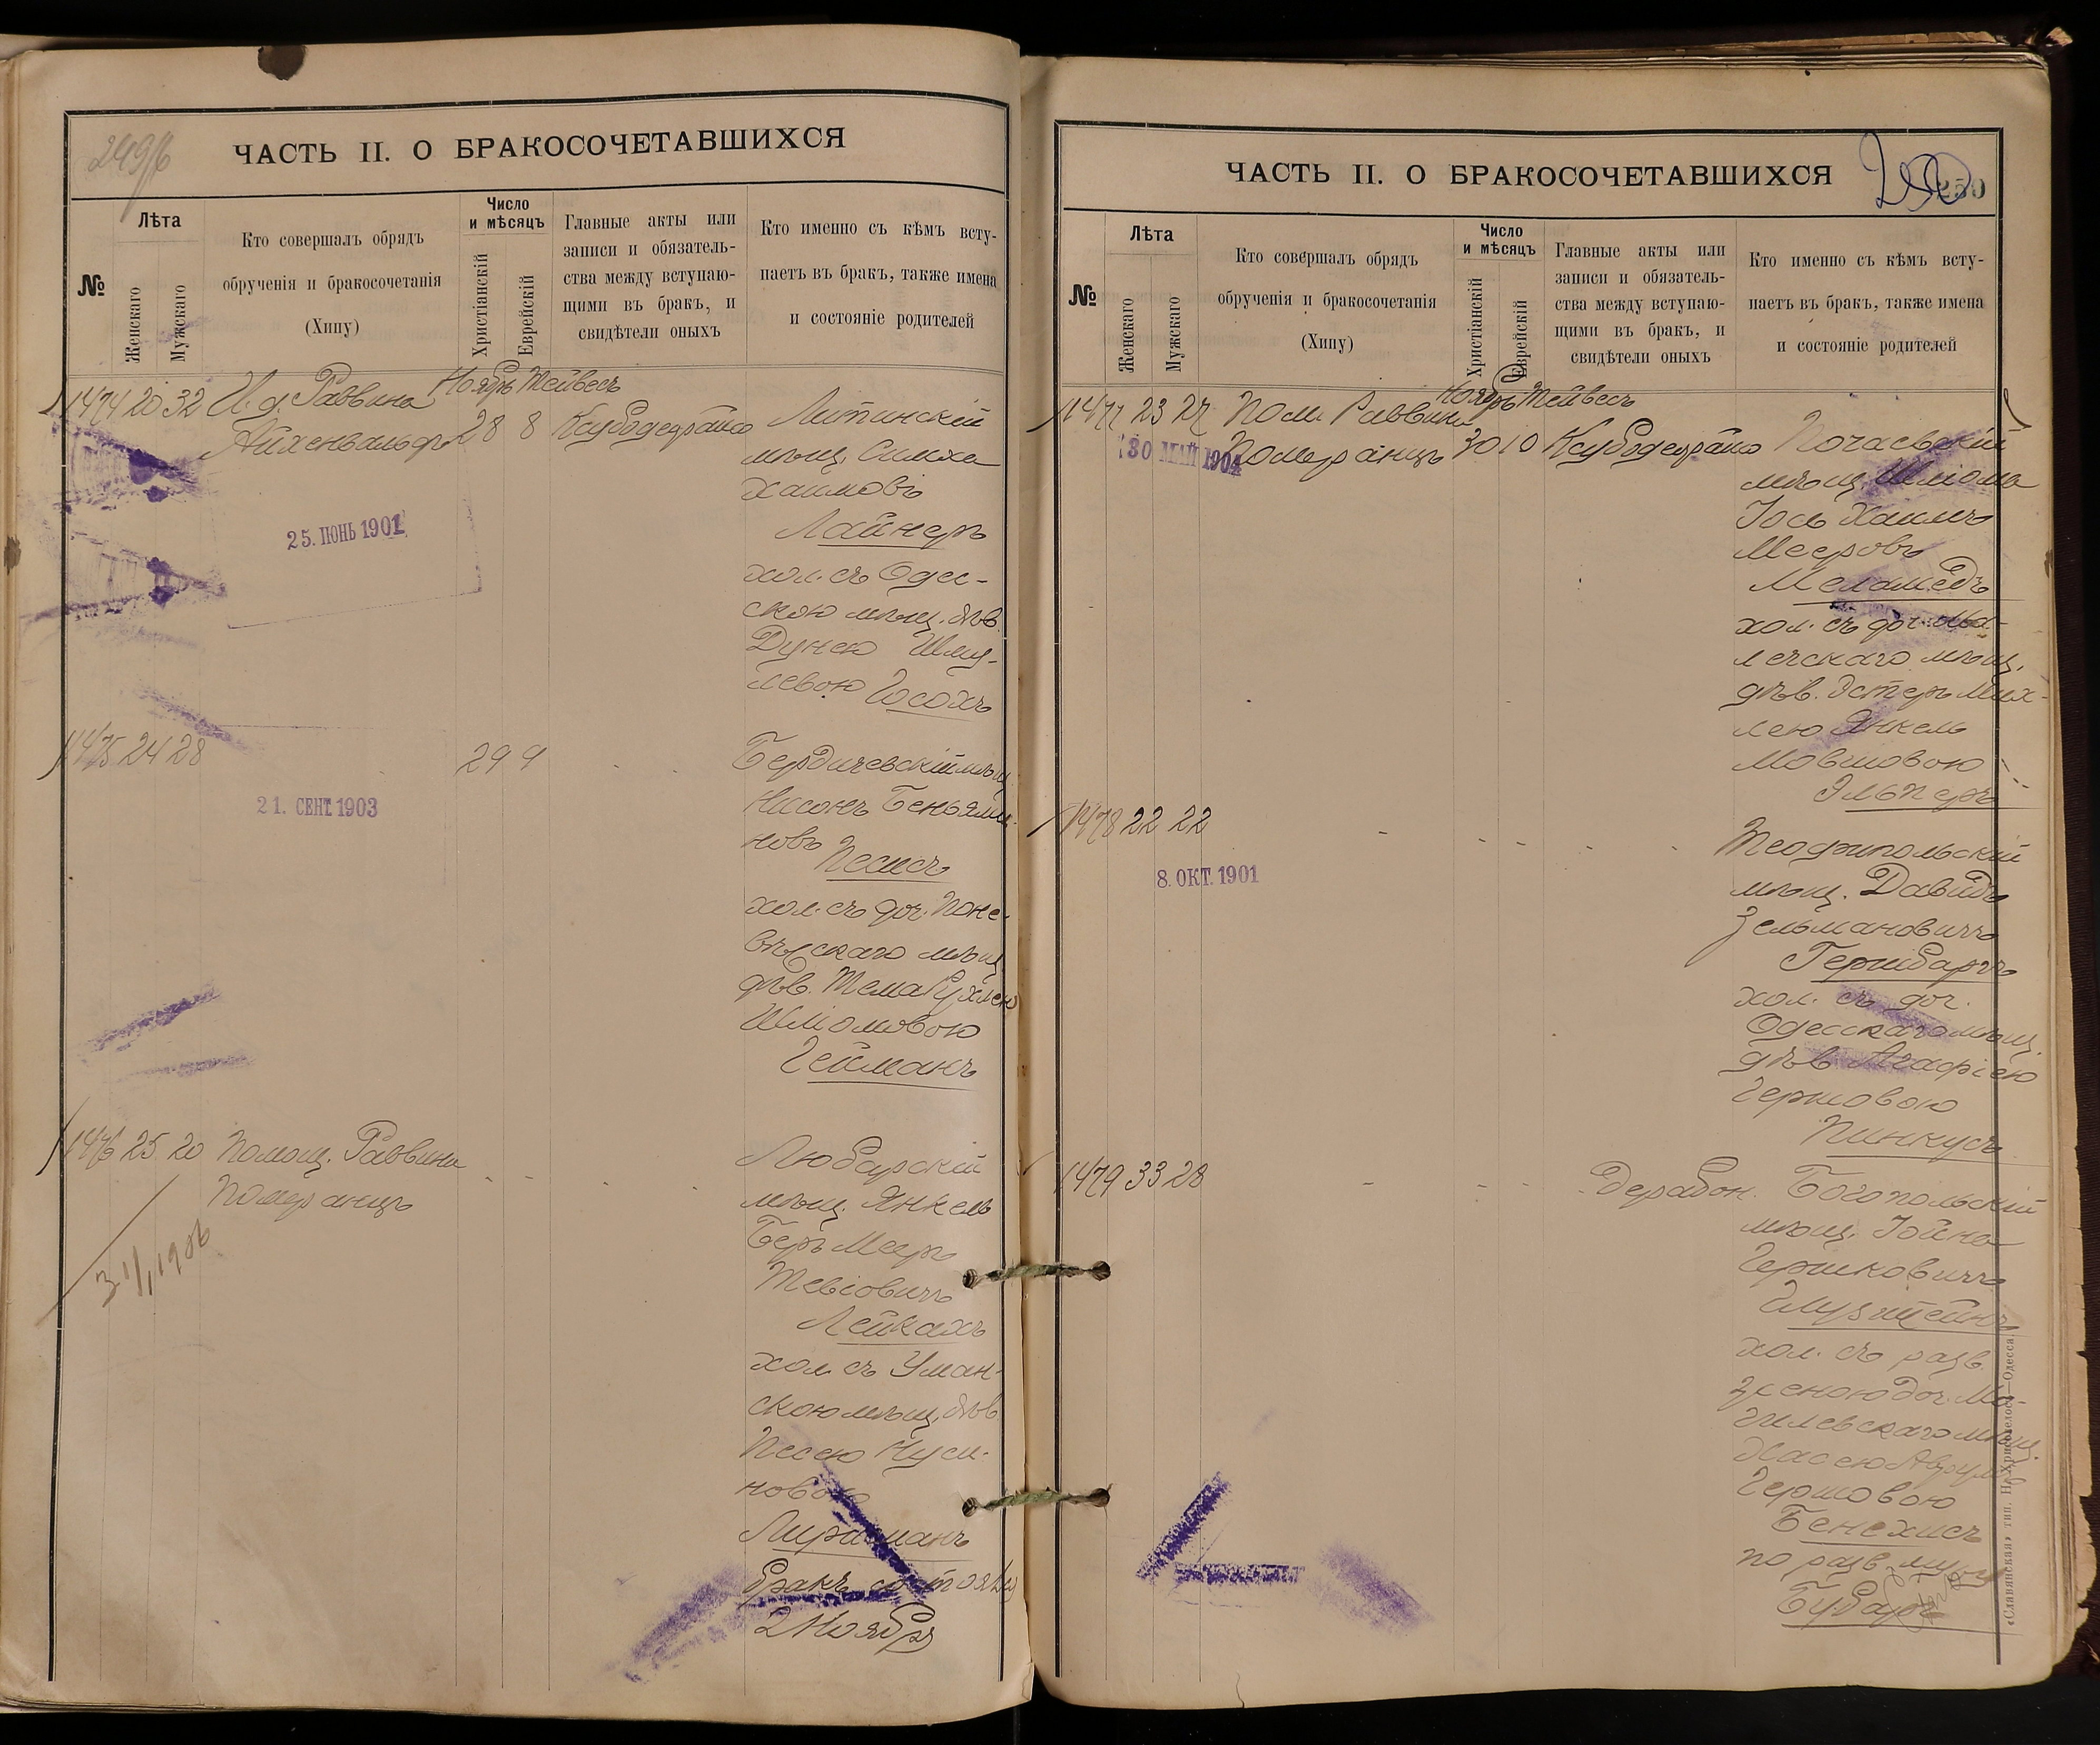 249/б
ЧАСТЬ II. О БРАКОСОЧЕТАВШИХСЯ
№
Лѣта
Женскаго
Мужскаго
Кто совершалъ обрядъ
обрученія и бракосочетанія
(Хипу)
Число
и мѣсяцъ
Христіанскій
Еврейскій
Главные акты или
записи и обязатель-
ства между вступаю-
щими въ бракъ, и
свидѣтели оныхъ
Кто именно съ кѣмъ всту-
паетъ въ бракъ, также имена
и состояніе родителей
1474 20 32 И. д. Раввина Ноябрь Тейвесъ
Айхенвальдъ 28 8 Ксубодецрайсо Литинскій
мѣщ. Симха
Хаимовъ
Лайнеръ
хол. съ Одес-
скою мѣщ. дѣв.
Дунею Шму-
левою Госохъ
25. ІЮНЬ 1901
1475 24 28 29 9 Бердичевскій мѣщ
Нисонъ Беньями-
новъ Песисъ
хол. съ доч. Поне-
вѣжскаго мѣщ
дѣв. Тема Рухлею
Шліомовою
Гейманъ
21. СЕНТ. 1903
1476 25 20 Помощ. Раввина
Померанцъ
Любарскій
мѣщ. Янкель
Беръ Мееръ
Тевіовичъ
Лейкахъ
хол. съ Уман-
скою мѣщ. дѣв.
Песею Нуси-
новою
бракъ состоялся
2 Ноября
3 1/1 1906
ЧАСТЬ II. О БРАКОСОЧЕТАВШИХСЯ
250
№
Лѣта
Женскаго
Мужскаго
Кто совершалъ обрядъ
обрученія и бракосочетанія
(Хипу)
Число
и мѣсяцъ
Христіанскій
Еврейскій
Главные акты или
записи и обязатель-
ства между вступаю-
щими въ бракъ, и
свидѣтели оныхъ
Кто именно съ кѣмъ всту-
паетъ въ бракъ, также имена
и состояніе родителей
1477 23 27 Пом. Раввина Ноябрь Тейвесъ
Померанцъ 30 10 Ксубодецрайсо Почаевскій
мѣщ. Шліома
Іось Хаимъ
Мееровъ
Меламедъ
хол. съ доч. Ма-
лечскаго мѣщ.
дѣв. Эстеръ Мих-
лею Янкель
Мовшовою
Эльперъ
30 МАЙ 1904
1478 22 22
Теофипольскій
мѣщ. Давидъ
Зельмановичъ
Гершбаргъ
хол. съ доч.
Одесскаго мѣщ.
дѣв Агафіею
Гершовою
Пинкусъ
8. ОКТ. 1901
1479 33 28 Дерабон. Богопольскій
мѣщ. Іойна
Гершковичъ
Глузштейнъ
хол. съ разв.
женою доч. Мо-
гилевскаго мѣщ.
Хасею Аврумъ
Гершовою
Бенехисъ
по разв. мужу
«Славянская» тип. Н. Хрисогелосъ—Одесса.